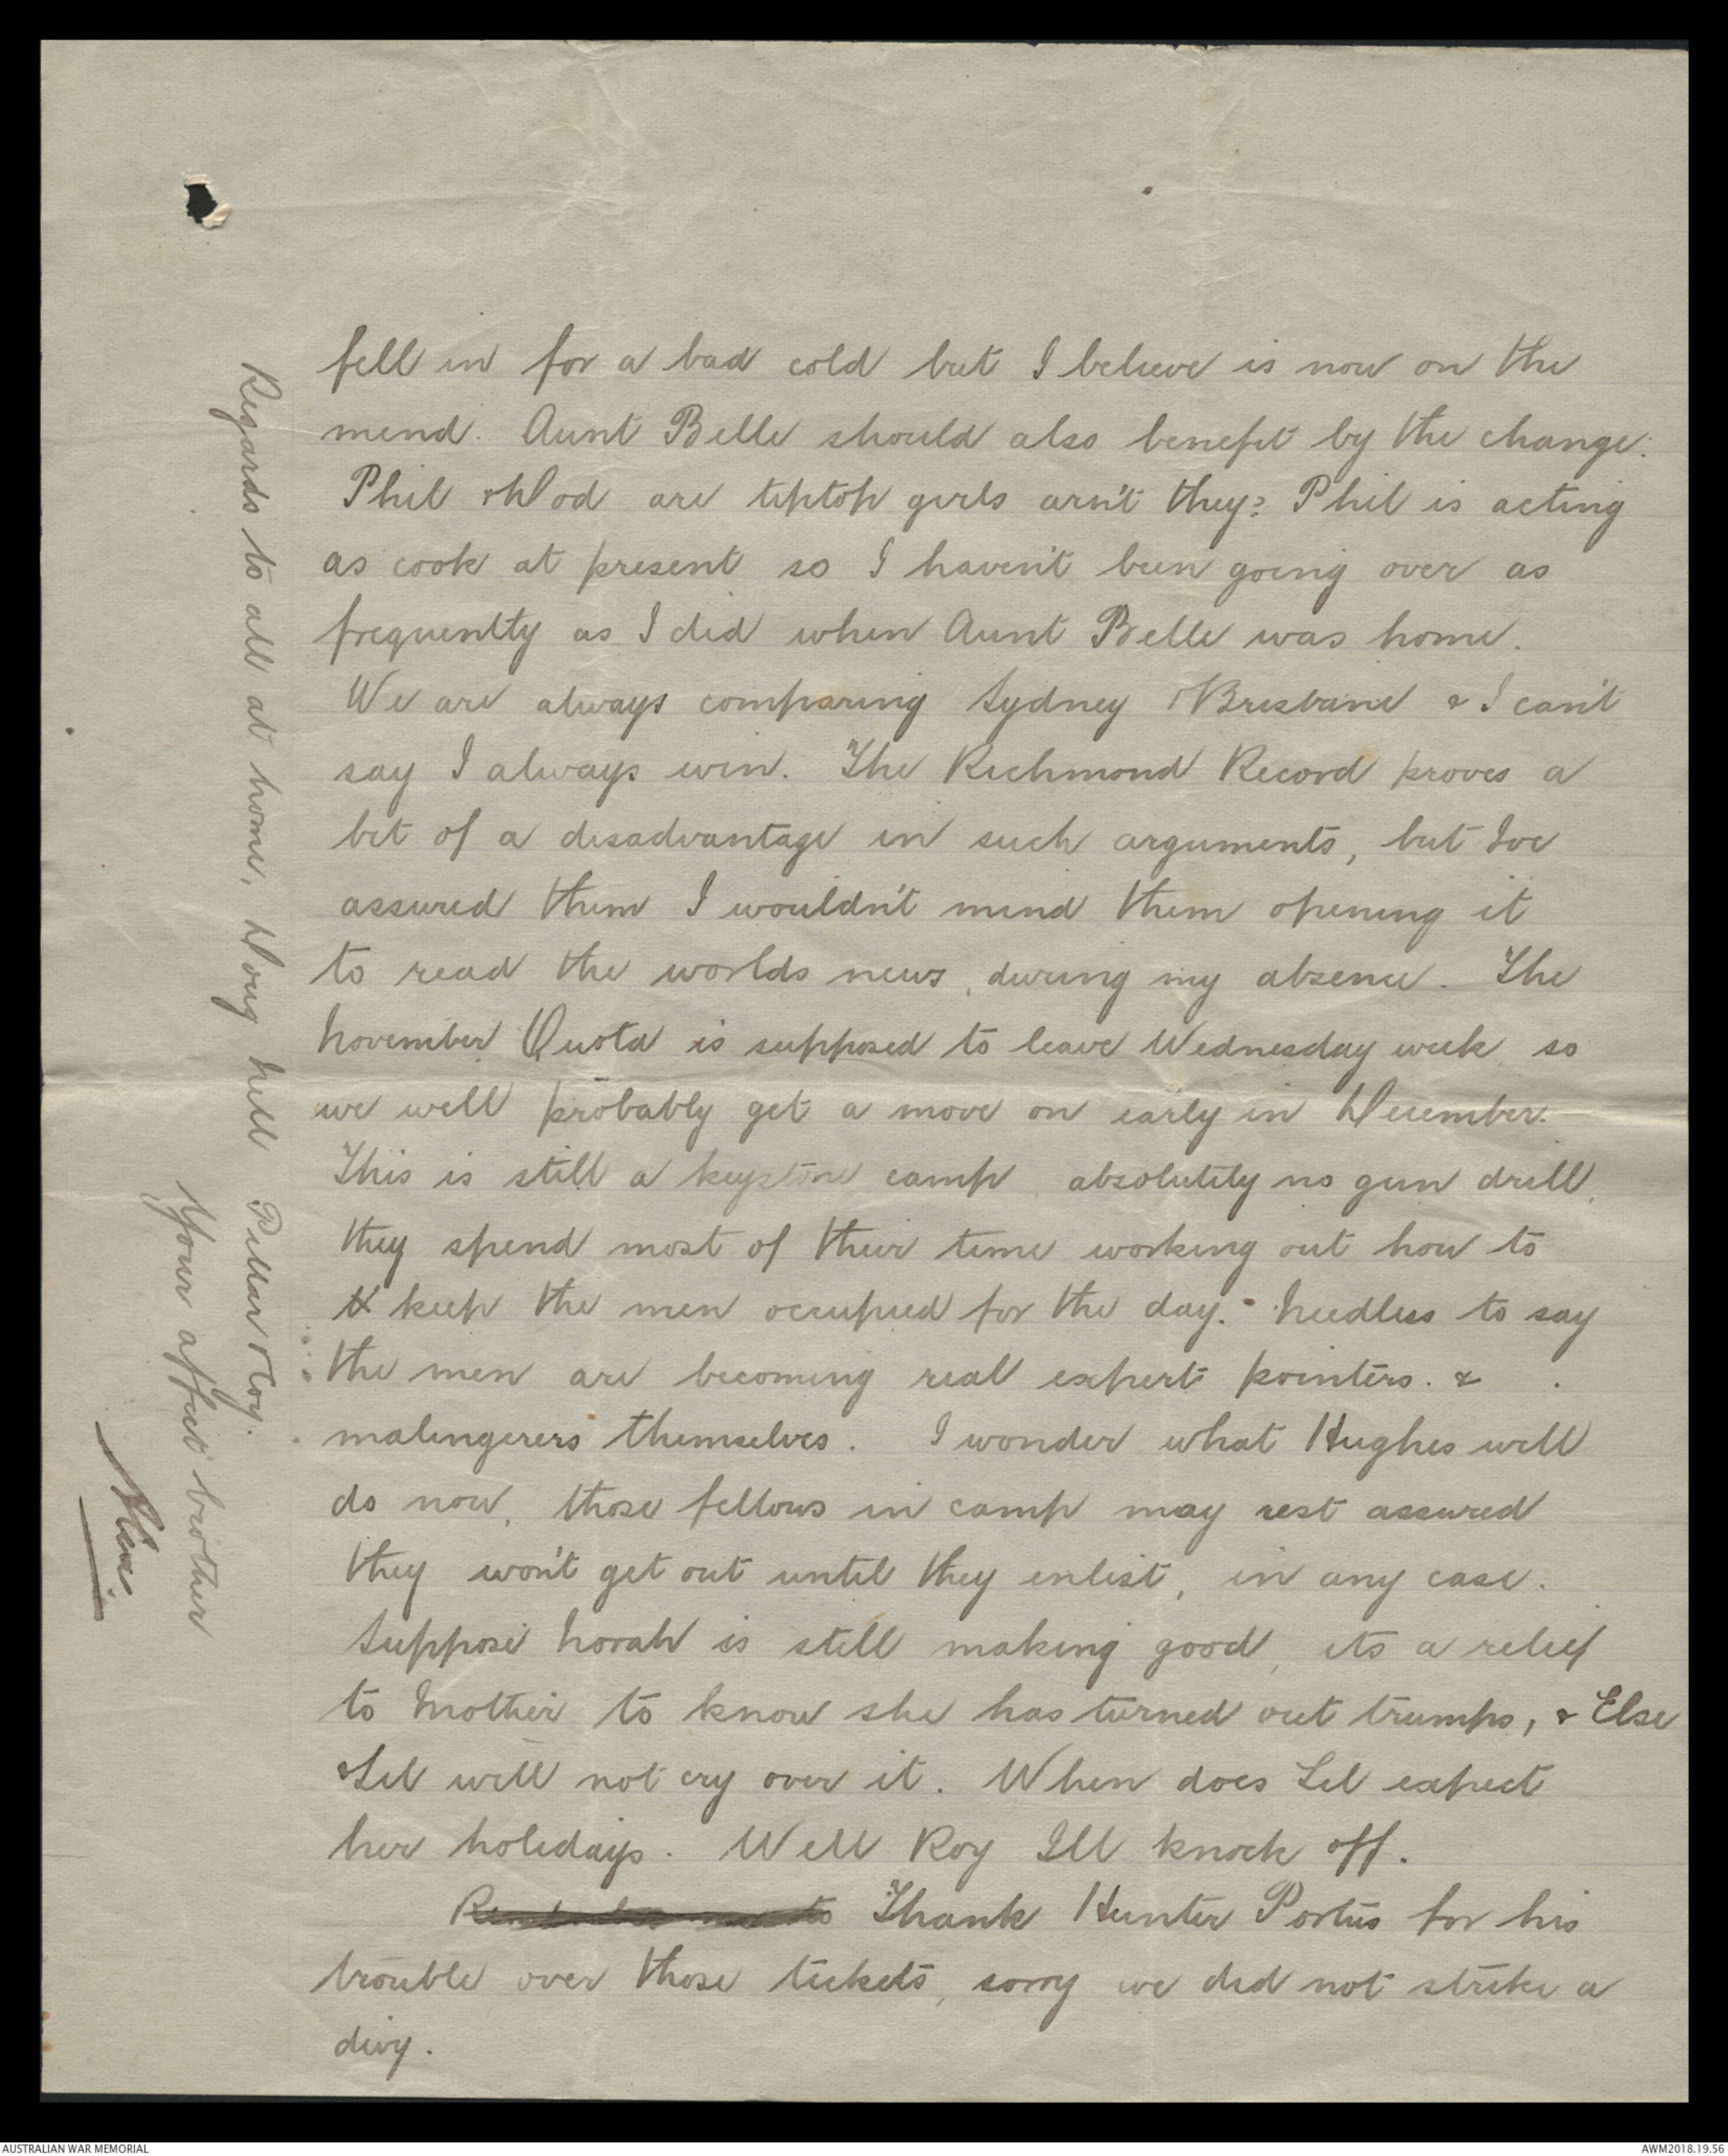 fell in for a bad cold but I believe is now on the
mend. Aunt Belle should also benefit by the change.
Phil & Dod are tiptop girls arn't they? Phil is acting
as cook at present so I haven't been going over as
frequently as I did when Aunt Belle was home.
We are always comparing Sydney & Brisbane & I can't
say I always win. The Richmond Record proves a
bit of a disadvantage in such arguments, but Ive
assured them I wouldn't mind them opening it
to read the worlds news, during my absence. The
November Quota is supposed to leave Wednesday week, so
we will probably get a move on early in December.
This is still a keystone camp, absolutely no gun drill,
they spend most of their time working out how to
keep the men occupied for the day. Needless to say
the men are becoming real expert pointers. &
malingerers themselves. I wonder what Hughes will
do now, those fellows in camp may rest assured
they won't get out until they enlist, in any case.
Suppose Norah is still making good, its a relief
to Mother to know she has turned out trumps, & Else
& Lil will not cry over it. When does Lil expect
her holidays. Well Roy Ill knock off.
Thank Hunter Portus for his
trouble over those tickets, sorry we did not strike a
divy.
Regards to all at home, Doug Nell Pillar & Coy.
Your affect brother
AUSTRALIAN WAR MEMORIAL
AWM2018.19.56